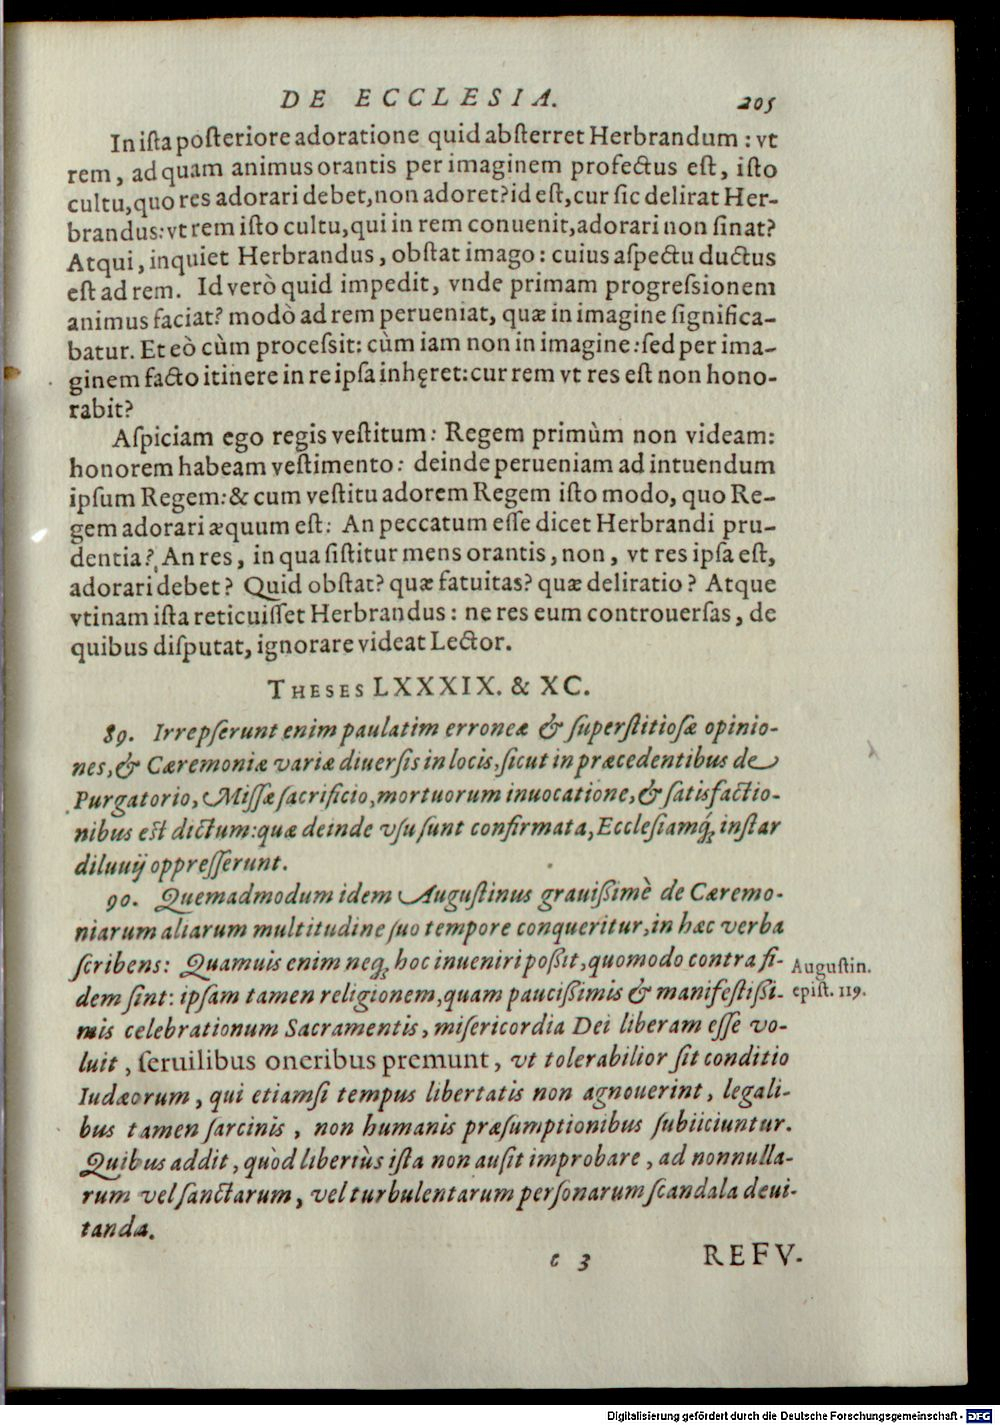 DE ECCLESIA. 205
In iſta poſteriore adoratione quid abſterret Herbrandum : vt
rem, ad quam animus orantis per imaginem profectus eſt, iſto
cultu, quo res adorari debet, non adoret? id eſt, cur ſic delirat Her-
brandus: vt rem iſto cultu, qui in rem conuenit, adorari non ſinat?
Atqui, inquiet Herbrandus, obſtat imago : cuius aſpectu ductus
eſt ad rem. Id verò quid impedit, vnde primam progreſsionem
animus faciat? modò ad rem perueniat, quæ in imagine ſignifica-
batur. Et eò cùm proceſsit: cùm iam non in imagine: ſed per ima-
ginem facto itinere in re ipſa inhęret: cur rem vt res eſt non hono-
rabit?
Aſpiciam ego regis veſtitum: Regem primùm non videam:
honorem habeam veſtimento: deinde perueniam ad intuendum
ipſum Regem: & cum veſtitu adorem Regem iſto modo, quo Re-
gem adorari æquum eſt: An peccatum eſſe dicet Herbrandi pru-
dentia? An res, in qua ſiſtitur mens orantis, non, vt res ipſa eſt,
adorari debet? Quid obſtat? quæ fatuitas? quæ deliratio? Atque
vtinam iſta reticuiſſet Herbrandus: ne res eum controuerſas, de
quibus diſputat, ignorare videat Lector.
THESES LXXXIX. & XC.
89. Irrepſerunt enim paulatim erroneæ & ſuperſtitioſæ opinio-
nes, & Cæremoniæ variæ diuerſis in locis, ſicut in præcedentibus de
Purgatorio, Miſſæ ſacrificio, mortuorum inuocatione, & ſatisfactio-
nibus eſt dictum: quæ deinde vſu ſunt confirmata, Eccleſiamq́; inſtar
diluuij oppreſſerunt.
90. Quemadmodum idem Auguſtinus grauißimè de Cæremo-
niarum aliarum multitudine ſuo tempore conqueritur, in hæc verba
ſcribens: Quamuis enim neq; hoc inueniri poßit, quomodo contra fi-
dem ſint: ipſam tamen religionem, quam paucißimis & manifeſtißi-
mis celebrationum Sacramentis, miſericordia Dei liberam eſſe vo-
luit, ſeruilibus oneribus premunt, vt tolerabilior ſit conditio
Iudæorum, qui etiamſi tempus libertatis non agnouerint, legali-
bus tamen ſarcinis, non humanis præſumptionibus ſubiiciuntur.
Quibus addit, quòd liberiùs iſta non auſit improbare, ad nonnulla-
rum vel ſanctarum, vel turbulentarum perſonarum ſcandala deui-
tanda.
Auguſtin.
epiſt. 119.
c 3 REFV-
Digitalisierung gefördert durch die Deutsche Forschungsgemeinschaft - DFG